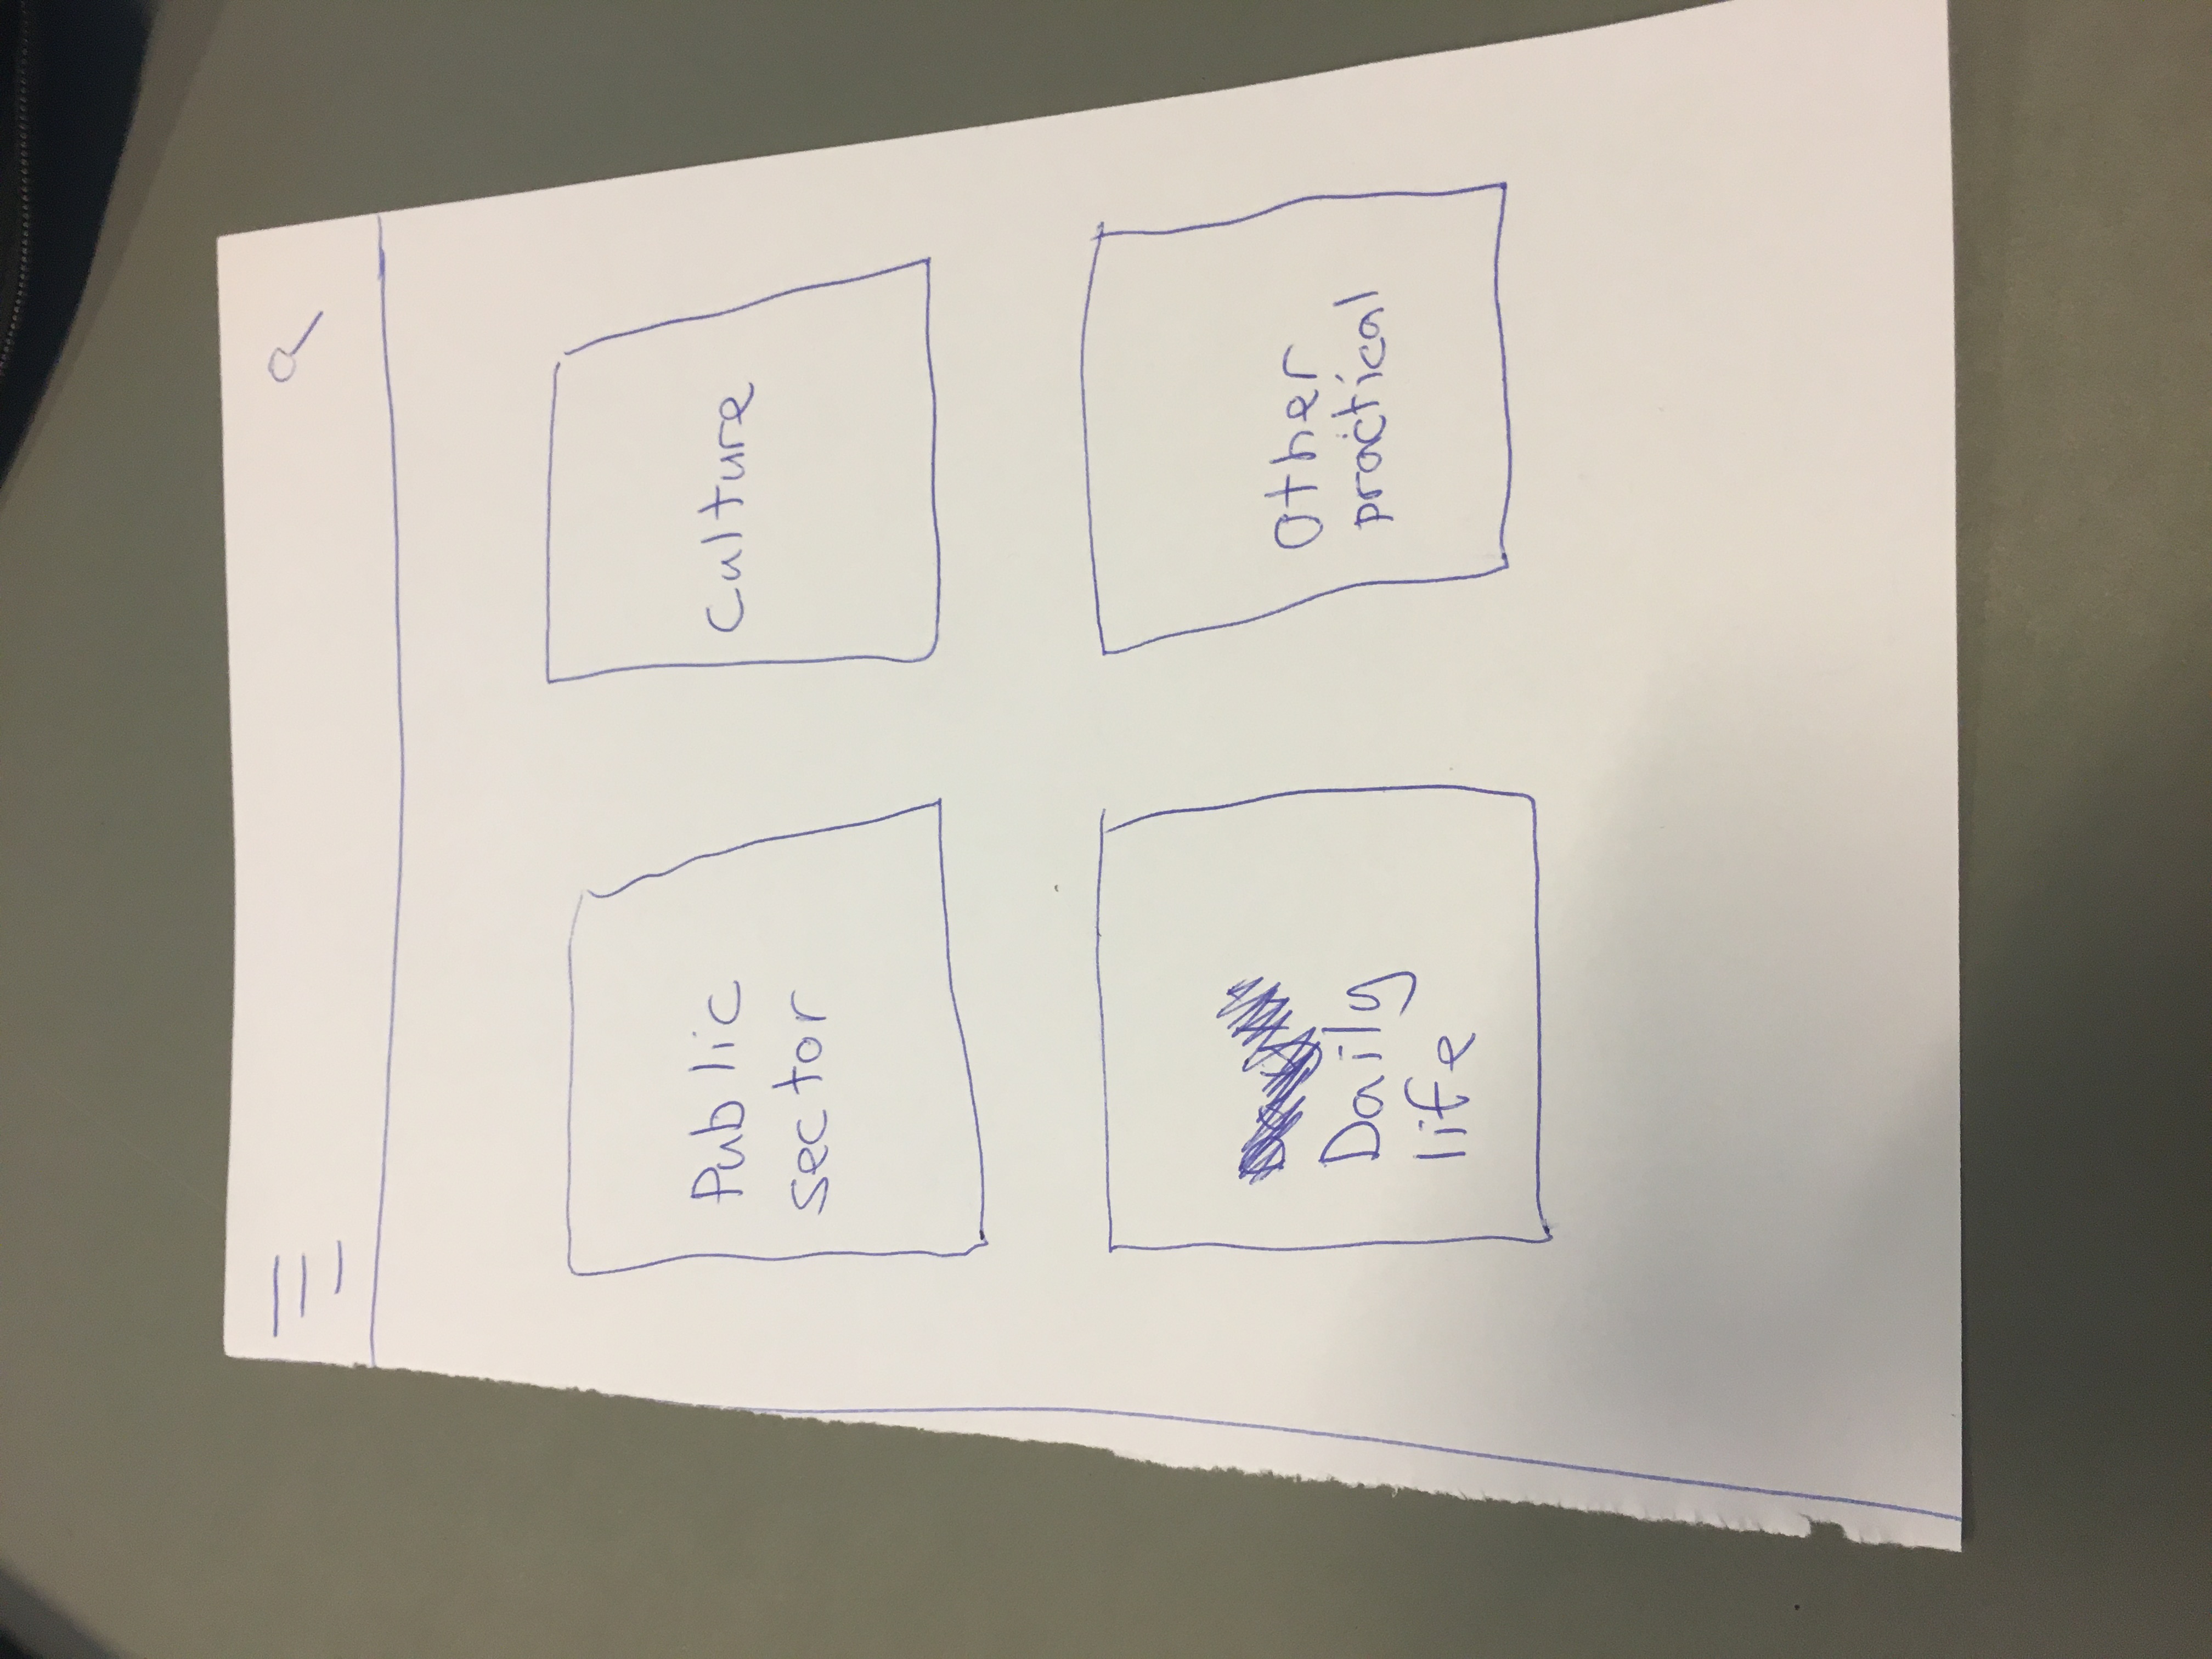 Public
sector
Culture
Daily
life
Other
practical